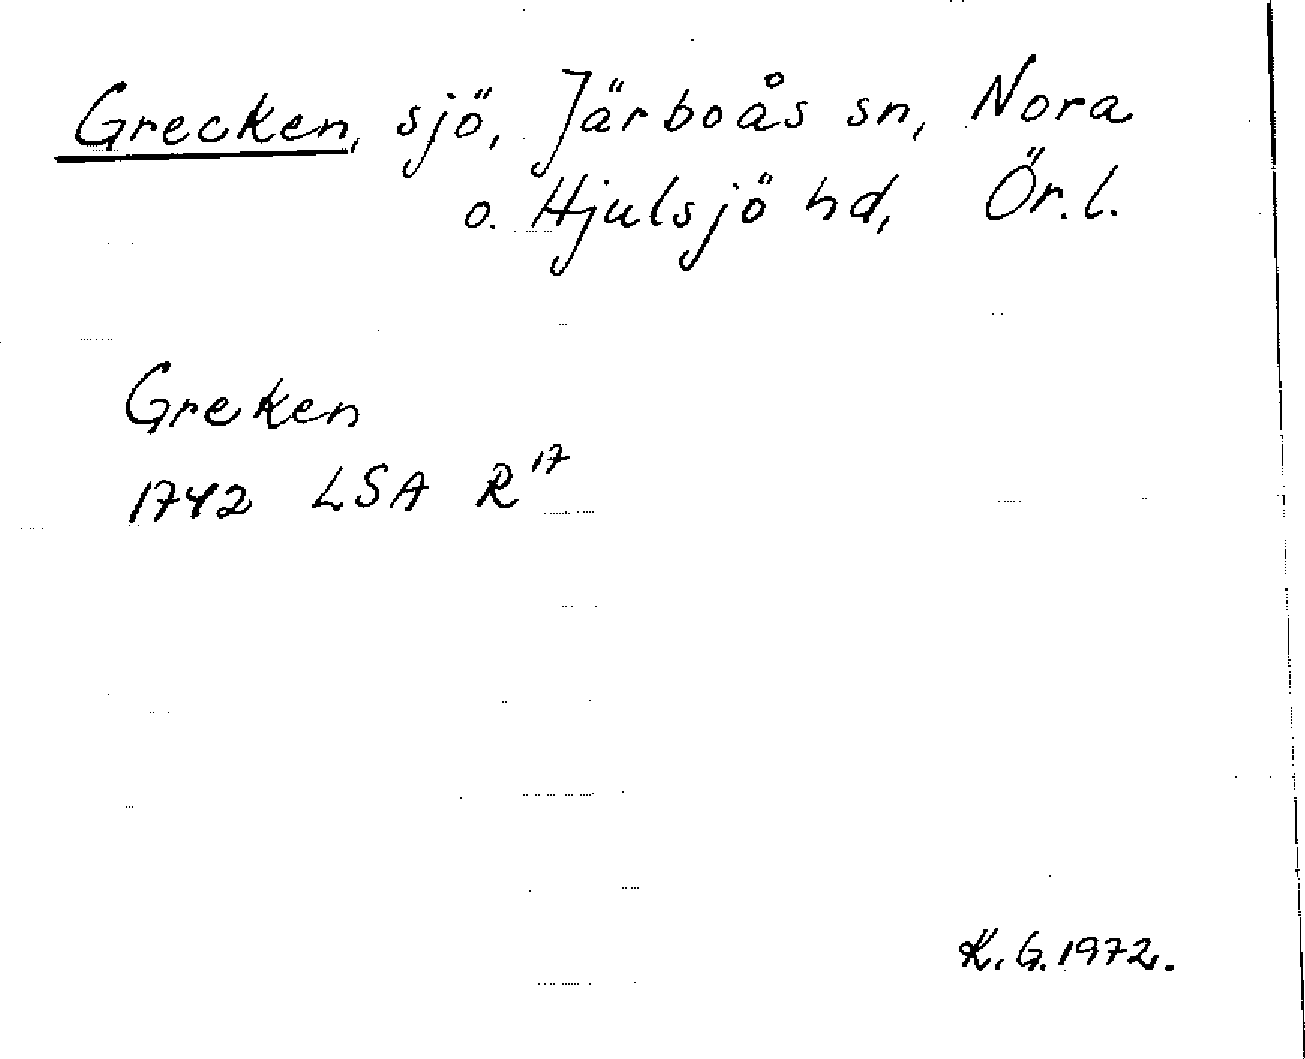 Grecken, sjö, Järboås sn, Nora
o. Hjulsjö hd, Ör. l.
Greken
1742 LSA R 17
K. G. 1972.